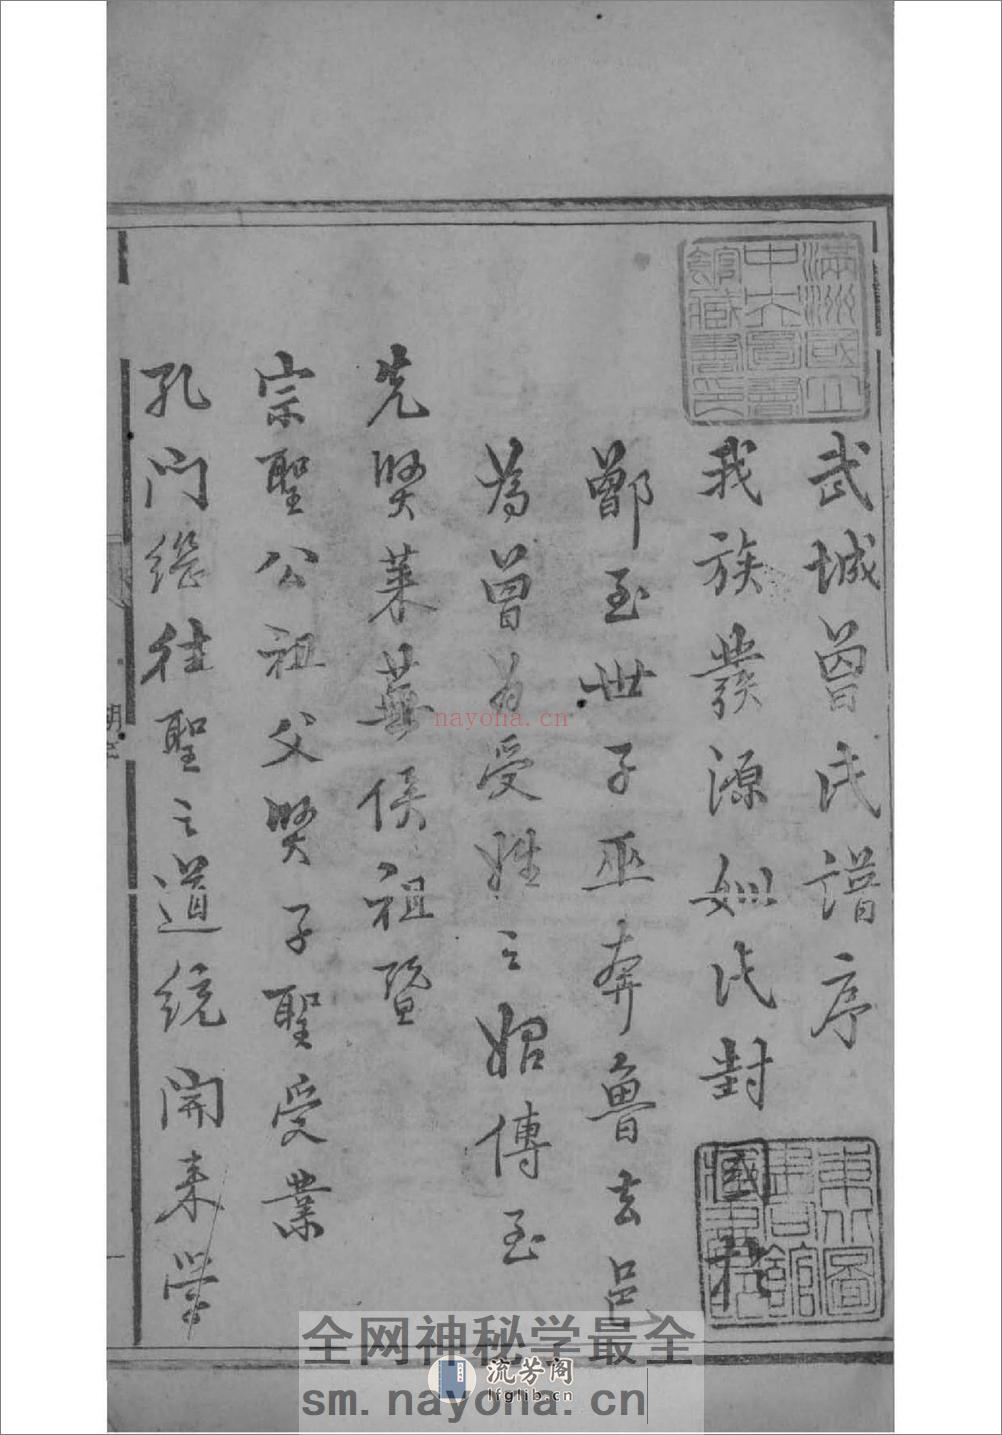 武城曾氏譜序
我族發源姒氏封國於
鄫至世子巫奔魯去邑
為曾為受姓之始傳至
先賢萊蕪侯祖暨
宗聖公祖父賢子聖受業
孔門繼往聖之道統開來學
滿洲國立
中央圖書
館藏書印
nayona.cn
全网神秘学最全
sm.nayona.cn
流芳阁
lfglib.cn